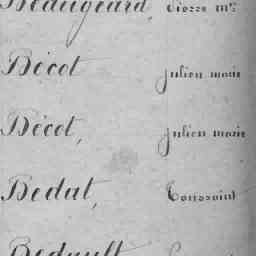 Beaugeard, Pierre Mie
Bécot Julien marie
Bécot, Julien marie
Bedat, Toussaint
Bedault